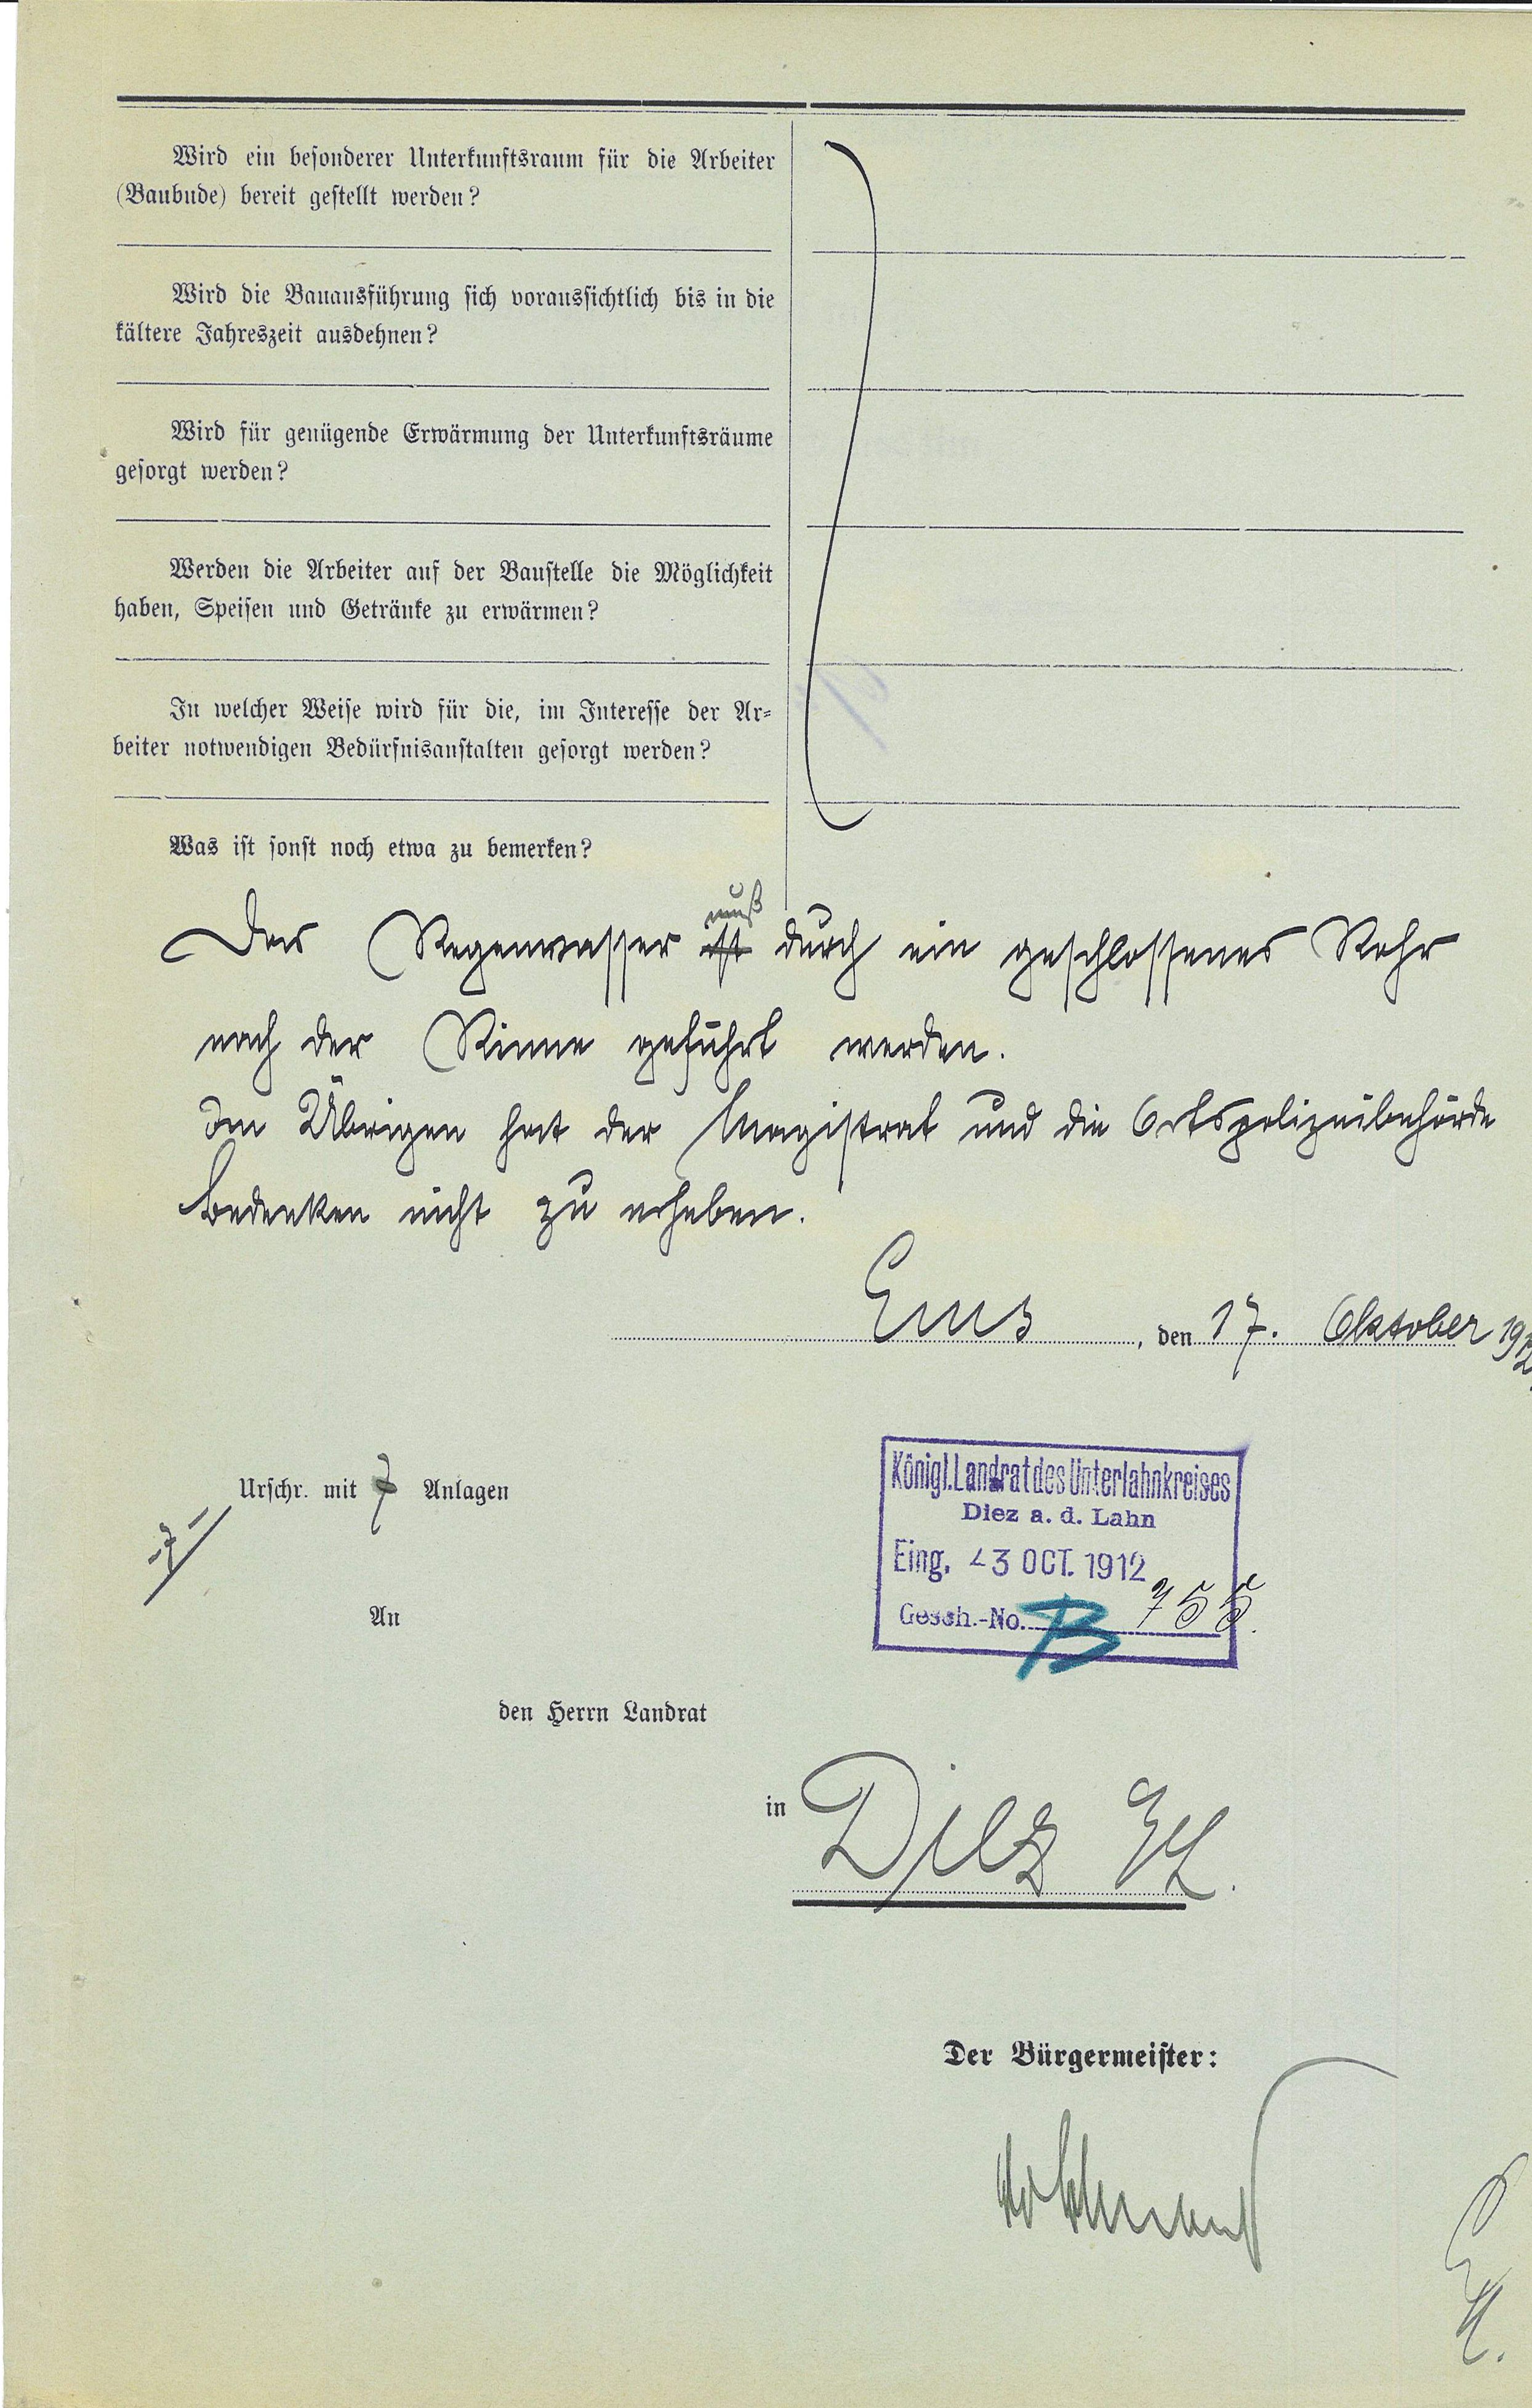 Wird ein besonderer Unterkunftsraum für die Arbeiter
(Baubude) bereit gestellt werden?
Wird die Bauausführung sich voraussichtlich bis in die
kältere Jahreszeit ausdehnen?
Wird für genügende Erwärmung der Unterkunftsräume
gesorgt werden?
Werden die Arbeiter auf der Baustelle die Möglichkeit
haben, Speisen und Getränke zu erwärmen?
In welcher Weise wird für die, im Interesse der Ar-
beiter notwendigen Bedürfnisanstalten gesorgt werden?
Was ist sonst noch etwa zu bemerken?
muß
Das Regenwasser ist durch ein geschlossenes Rohr
nach der Rinne geführt werden.
Im Übrigen hat der Magistrat und die Ortspolizeibehörde
Bedenken nicht zu erheben.
Ems, den 17. Oktober 1912.
Urschr. mit 7 Anlagen
-7-
Königl. Landrat des Unterlahnkreises
Diez a. d. Lahn
Eing. 23 OCT. 1912
Gesch.-No. B 755.
An
den Herrn Landrat
in Diez
Der Bürgermeister: